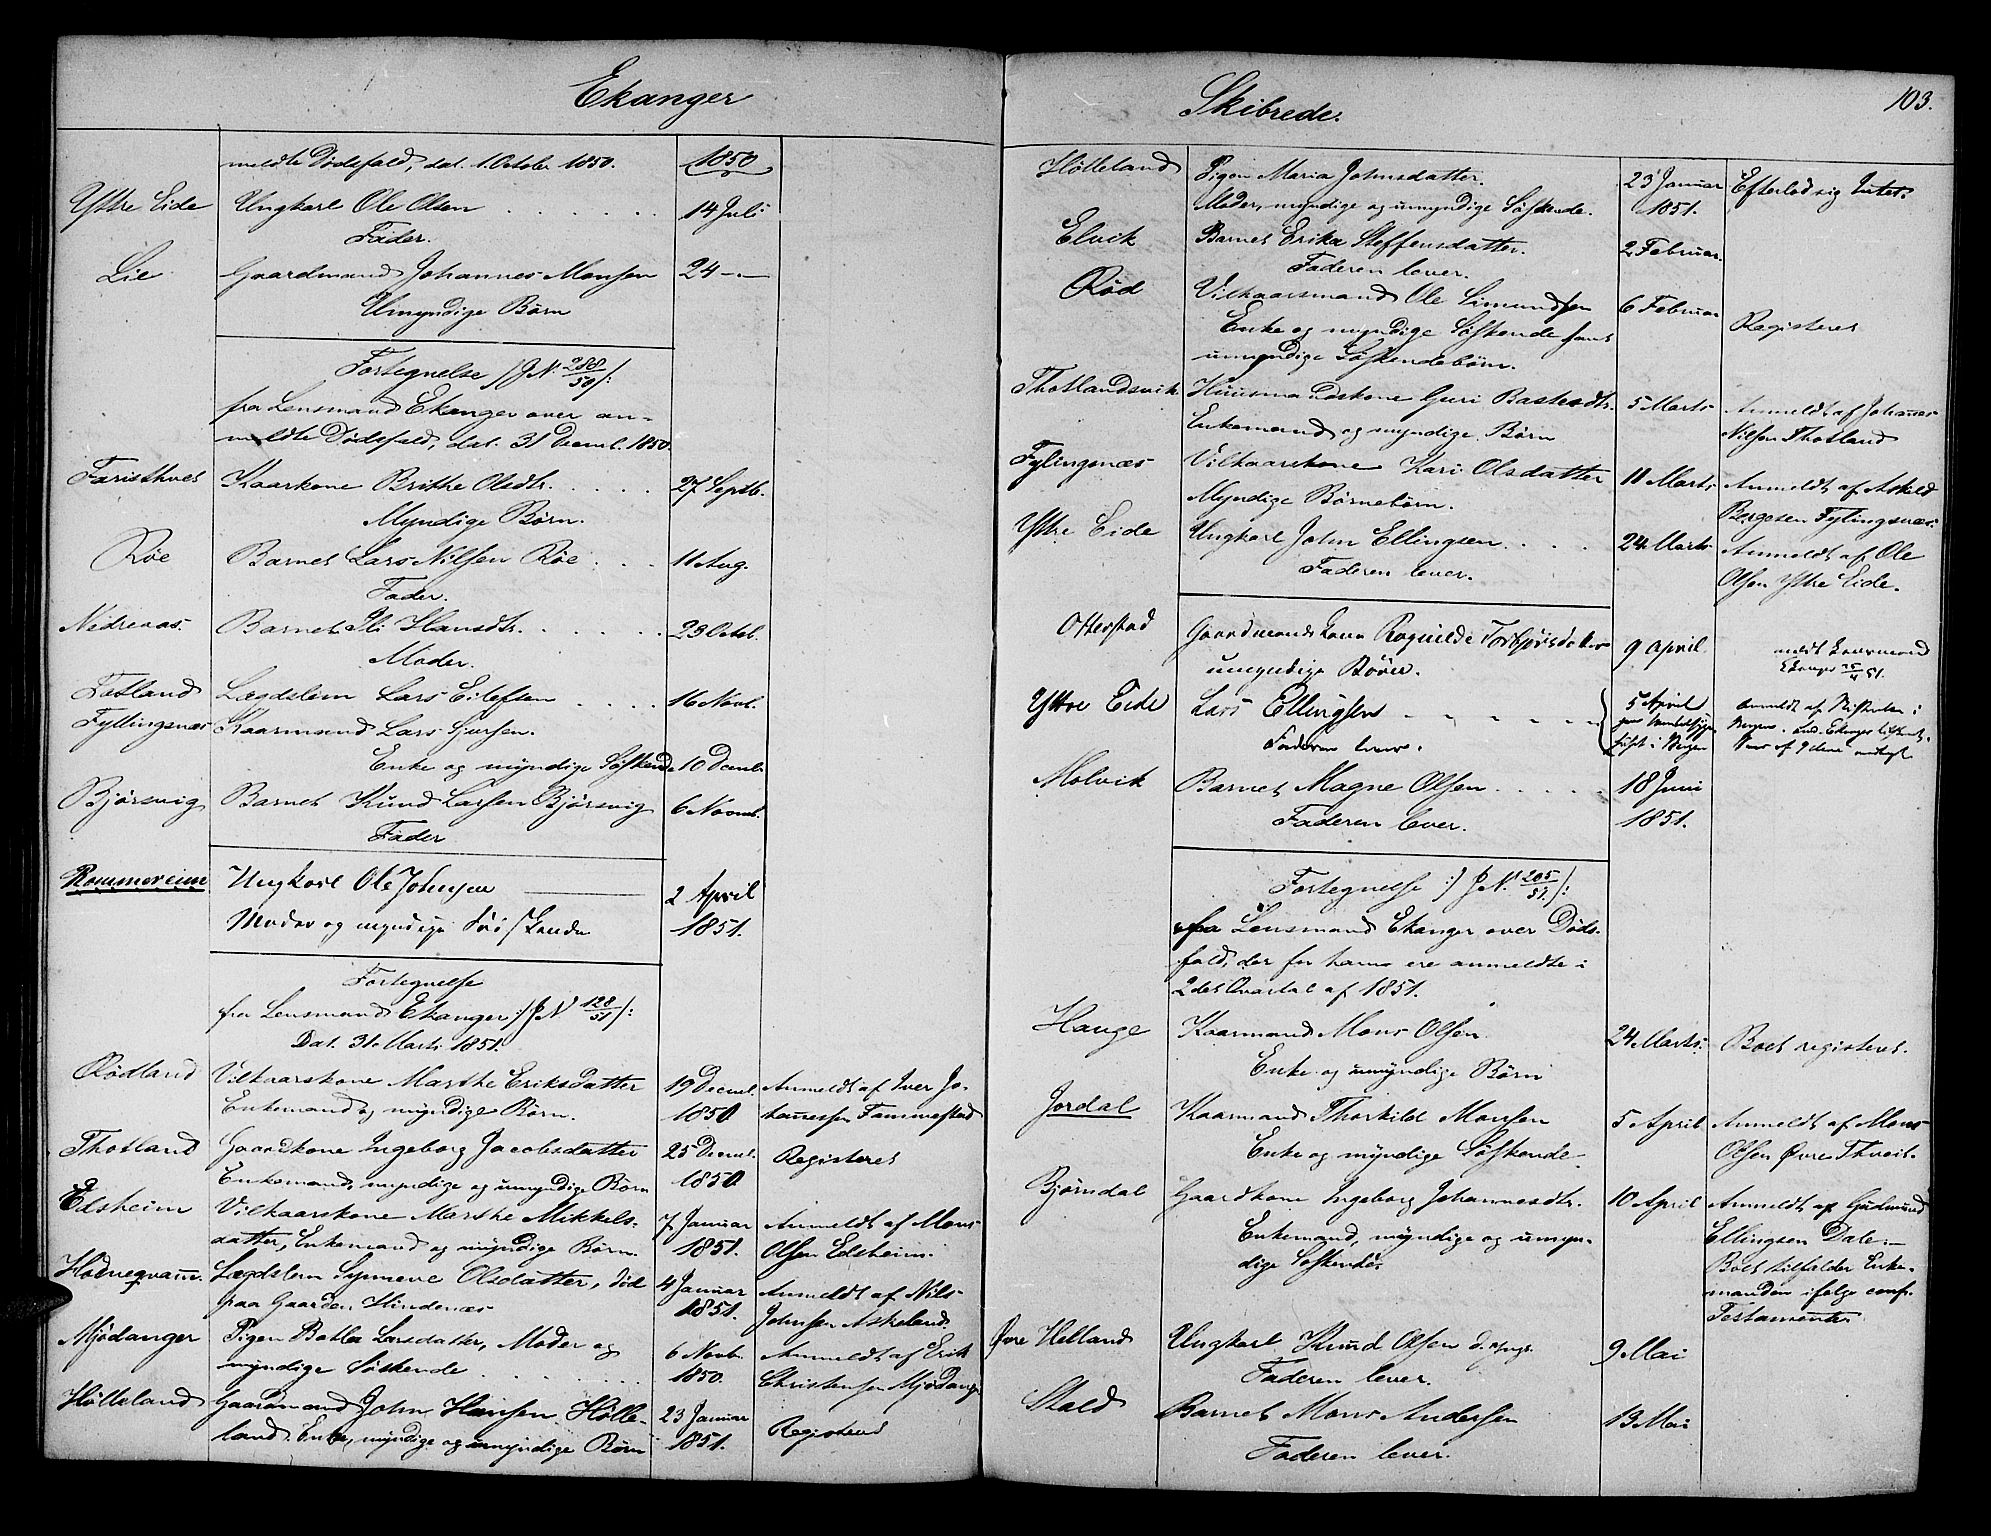 Ekanger
meldte Dødsfald, dat. 1 Octobr 1850.
1850
Yttre Eide Ungkarl Ole Olsen 14 Juli
Fader.
Lie Gaardmand Johannes Monsen 24 -"-
Umyndige Børn
Fortegnelse /: J N. 288/50 :/
fra Lensmand Ekanger over an-
meldte Dødsfald, dat. 31 Decemb. 1850.
Faristhvet Kaarkone Brithe Olsdtr. 27 Septb.
Myndige Børn.
Røe Barnet Lars Nilsen Røe 11 Aug.
Fader.
Nedreaas. Barnet Ili Hansdtr. 23 Octob.
Moder.
Totland Lægdslem Lars Eilefsen 16 Novb.
Fyllingsnæs Kaarmand Lars Sjursen.
Enke og myndige Søskende 10 Decemb.
Bjørsvig Barnet Knud Larsen Bjørsvig 6 Novemb.
Fader
Rommereim Ungkarl Ole Johnsen 2 April
Moder og myndige Søskende 1851.
Fortegnelse
fra Lensmand Ekanger /: J N 128/51 :/
Dat. 31 Marts 1851.
Rødland Vilkaarskone Marthe Eriksdatter 19 Decemb. Anmeldt af Iver Jo-
Enkemand og myndige Børn. 1850 hannessen Fammestad
Thotland Gaardkone Ingeborg Jacobsdatter 25 Decemb. Registeret
Enkemand, myndige og umyndige Børn 1850
Edsheim Vilkaarskone Marthe Mikkels- 7 Januar Anmeldt af Mons
datter, Enkemand og myndige Børn. 1851. Olsen Edsheim.
Hodneqvam. Lægdslem Synneve Olsdatter, død 4 Januar Anmeldt af Nils
paa Gaarden Hindenæs 1851. Johnsen Askeland.
Mjødanger Pigen Botle Larsdatter, Moder og 6 Novb. Anmeldt af Erik
myndige Søskende 1850. Christensen Mjødang.
Hølleland Gaardmand John Hansen Hølle- 23 Januar Registeret
land. Enke, myndige og umyndige Børn 1851.
Skibrede.
103.
Hølleland Pigen Maria Johnsdatter. 23 Januar Efterlod sig Intet.
Moder, myndige og umyndige Søskende. 1851.
Elvik Barnet Erika Steffensdatter. 2 Februar.
Faderen lever.
Rød Vilkaarsmand Ole Simundsen 6 Februar
Enke og myndige Søskende samt Registeret
umyndige Søskendebørn.
Thotlandsvik Huusmandskone Guri Bastesdtr. 5 Marts Anmeldt af Johannes
Enkemand og myndige Børn Nilsen Thotland
Fylingsnæs Vilkaarskone Kari Olsdatter 11 Marts Anmeldt af Askild
Myndige Børnebørn. Bergesen Fylingsnæs.
Yttre Eide Ungkarl John Ellingsen 24 Marts Anmeldt af Ole
Faderen lever. Olsen Yttre Eide.
Otterstad Gaardmandskone Ragnilde Torbjørnsdatter 9 April meldt Lensmand
umyndige Børn. Ekanger 25/4 51.
Yttre Eide Lars Ellingsen 5 April
Faderen lever. i Bergen
Molvik Barnet Magne Olsen 18 Juni
Faderen lever. 1851.
Fortegnelse /: J N. 205/51 :/
fra Lensmand Ekanger over Døds-
fald, der for ham ere anmeldte i
2det Qvartal af 1851.
Hauge Kaarmand Mons Olsen. 24 Marts. Boet registeret.
Enke og umyndige Børn
Jordal Kaarmand Thorkild Monsen 5 April Anmeldt af Mons
Enke og myndige Søskende. Olsen Øvre Thveit.
Bjørndal Gaardkone Ingeborg Johannesdtr. 10 April Anmeldt af Gudmund
Enkemand, myndige og umyn- Ellingsen Dale.
dige Søskende. Boet tilfalder Enke-
manden ifølge conf.
Testamente
Øvre Helland Ungkarl Knud Olsen d. yngr. 9 Mai
Faderen lever.
Stald Barnet Mons Andersen 13 Mai
Faderen lever.